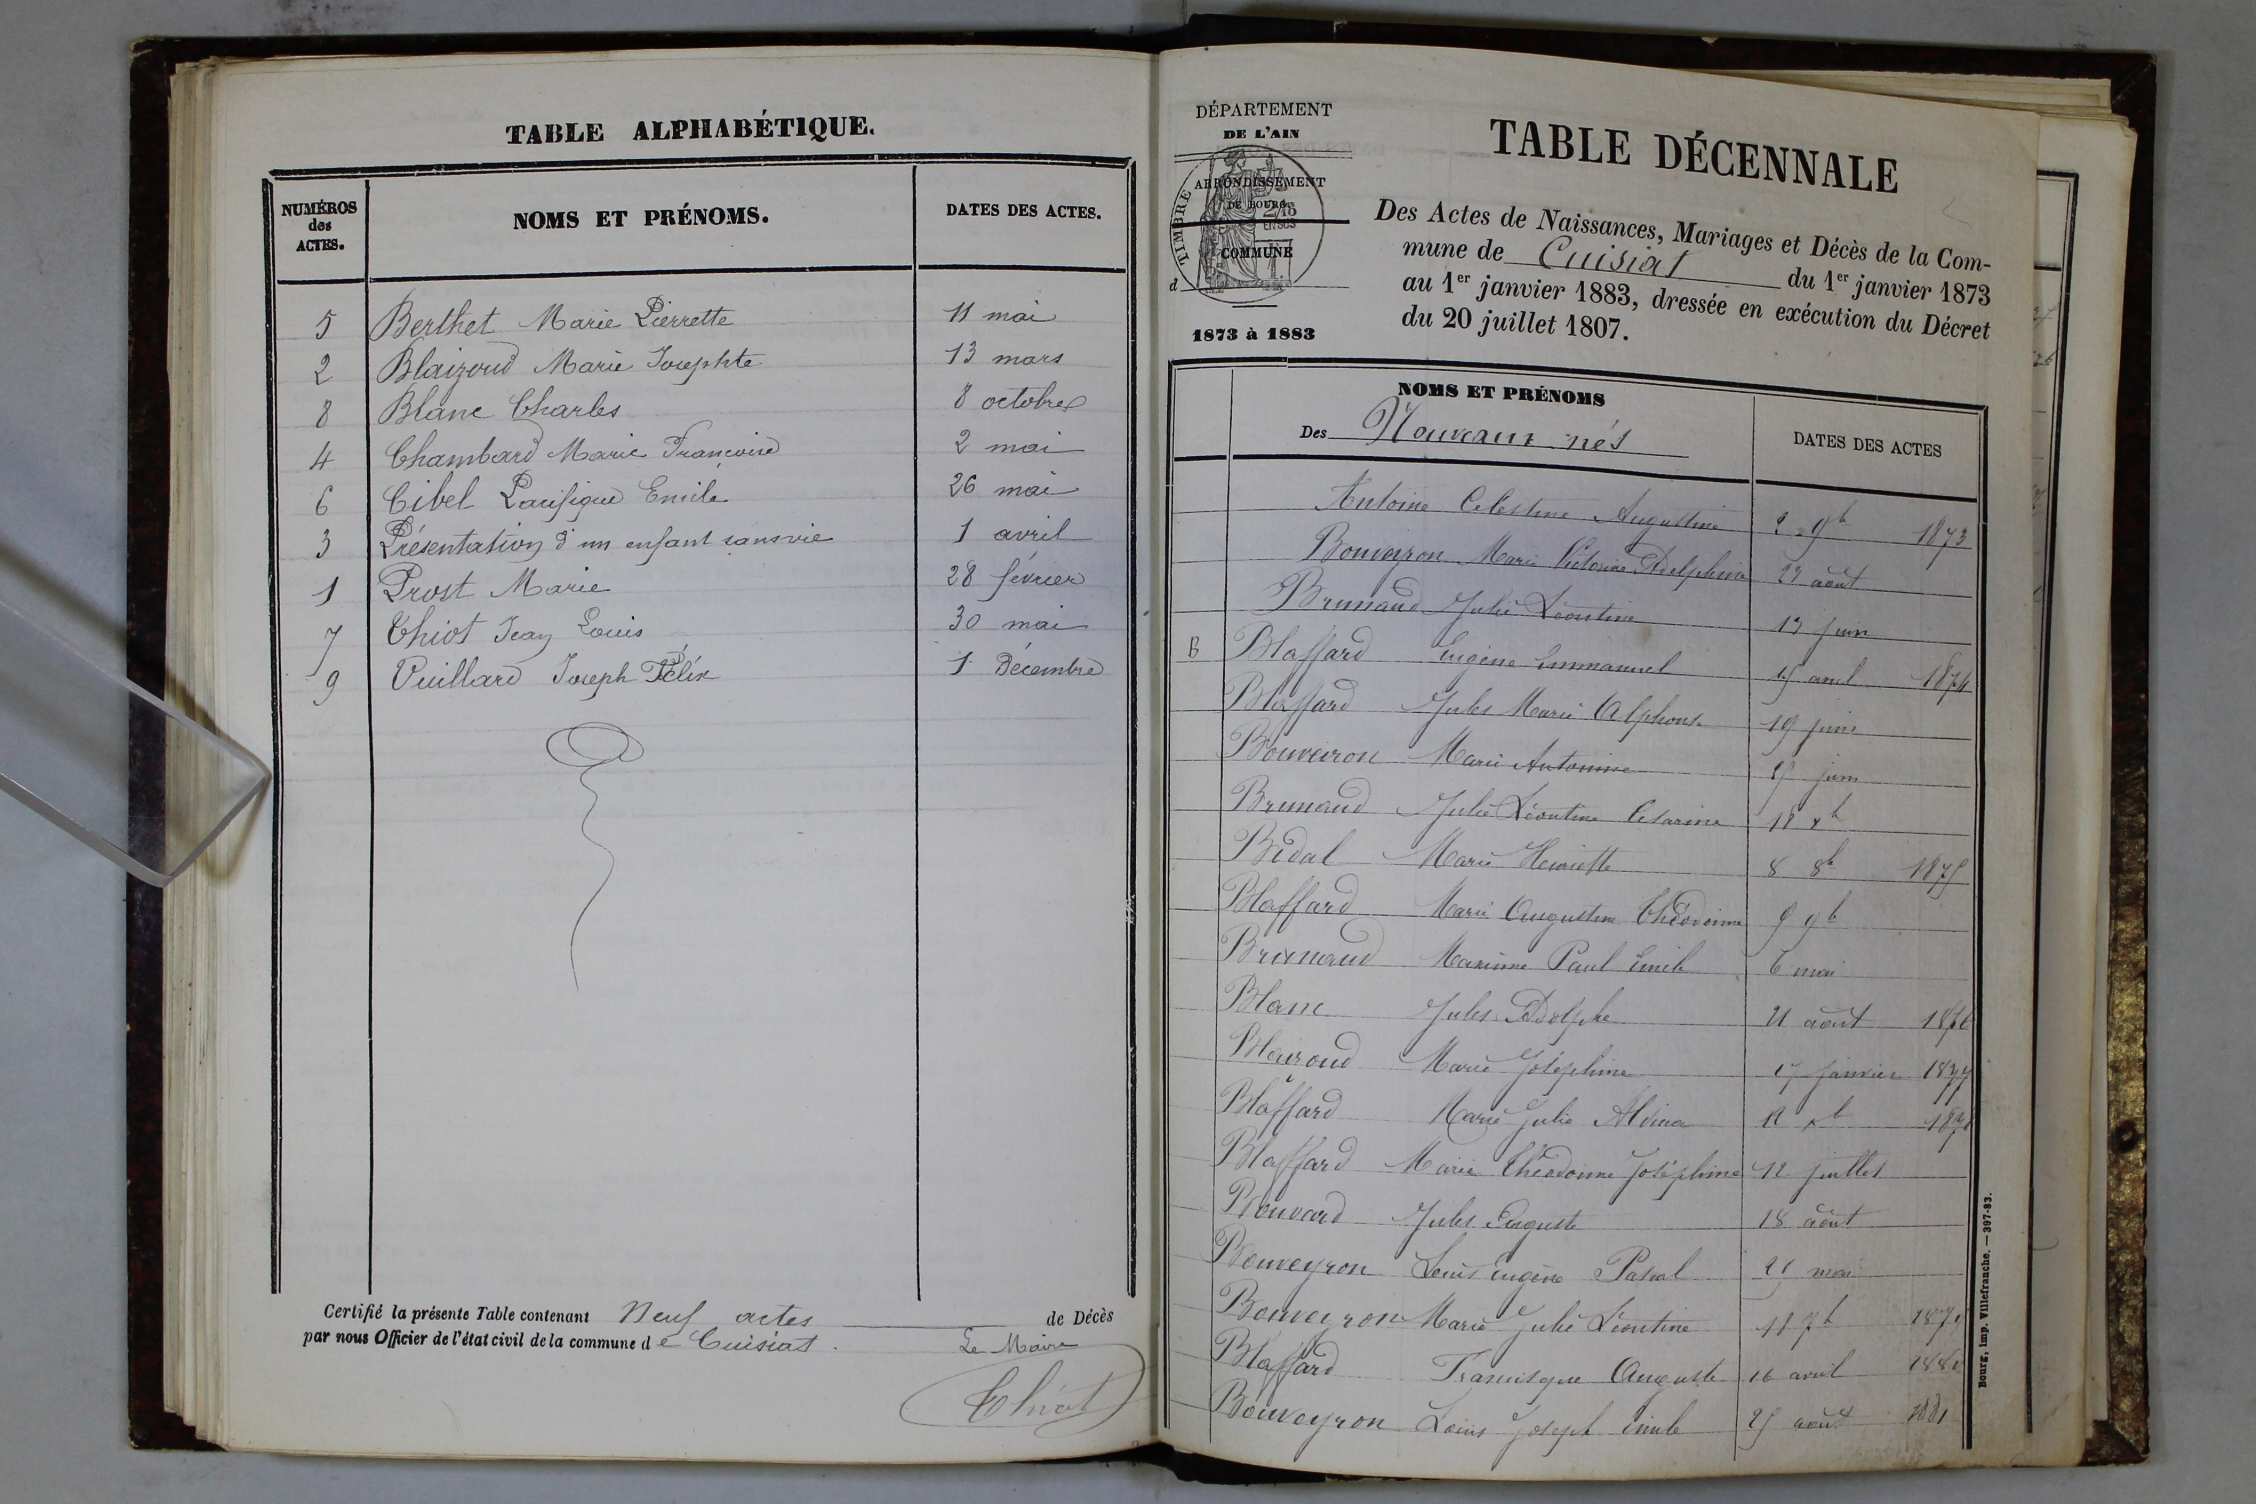 TABLE ALPHABÉTIQUE.
NUMÉROS des ACTES.
NOMS ET PRÉNOMS.
DATES DES ACTES.
5 Berthet Marie Pierrette 11 mai
2 Blaizoud Marie Josephte 13 mars
8 Blanc Charles 8 octobre
4 Chambard Marie Françoise 2 mai
6 Cibel Pacifique Emile 26 mai
3 Présentation d'un enfant sans vie 1 avril
1 Prost Marie 28 février
7 Chiot Jean Louis 30 mai
9 Vuillard Joseph Félix 1 Décembre
Certifié la présente Table contenant Neuf actes de Décès
par nous Officier de l'état civil de la commune de Cuisiat.
Le Maire
Chiot
DÉPARTEMENT
DE L'AIN
ARRONDISSEMENT
DE BOURG
COMMUNE
d
TIMBRE
1873 à 1883
TABLE DÉCENNALE
Des Actes de Naissances, Mariages et Décès de la Com-
mune de Cuisiat du 1er janvier 1873
au 1er janvier 1883, dressée en exécution du Décret
du 20 juillet 1807.
NOMS ET PRÉNOMS
Des Nouveaux nés
DATES DES ACTES
Antoine Celestine Augustine 9b 1873
Bouveyron Marie Victorine Delphine août
Brunaud Julie Léontine 13 juin
B Blaffard Eugène Emmanuel avril 1874
Blaffard Jules Marie Alphonse 19 juin
Bouveiron Marie Antonine juin
Brunaud Julie Léontine Césarine 18 xb
Bidal Marie Henriette 8 8b 1875
Blaffard Marie Augustine Théodorine 9b
Brunaud Maxime Paul Emile 6 mai
Blanc Jules Adolphe 21 août 1876
Blaizoud Marie Joséphine 17 janvier 1877
Blaffard Marie Julie Aldina 12 xb
Blaffard Marie Théodorine Joséphine 12 juillet
Bouvard Jules Auguste 18 août
Bouveyron Louis Eugène Pascal 21 mai
Bouveyron Marie Julie Léontine 18 7b
Blaffard Francisque Auguste 16 avril 1880
Bouveyron Louis Joseph Emile 25 août 1881
Bourg, imp. Villefranche. — 397-83.